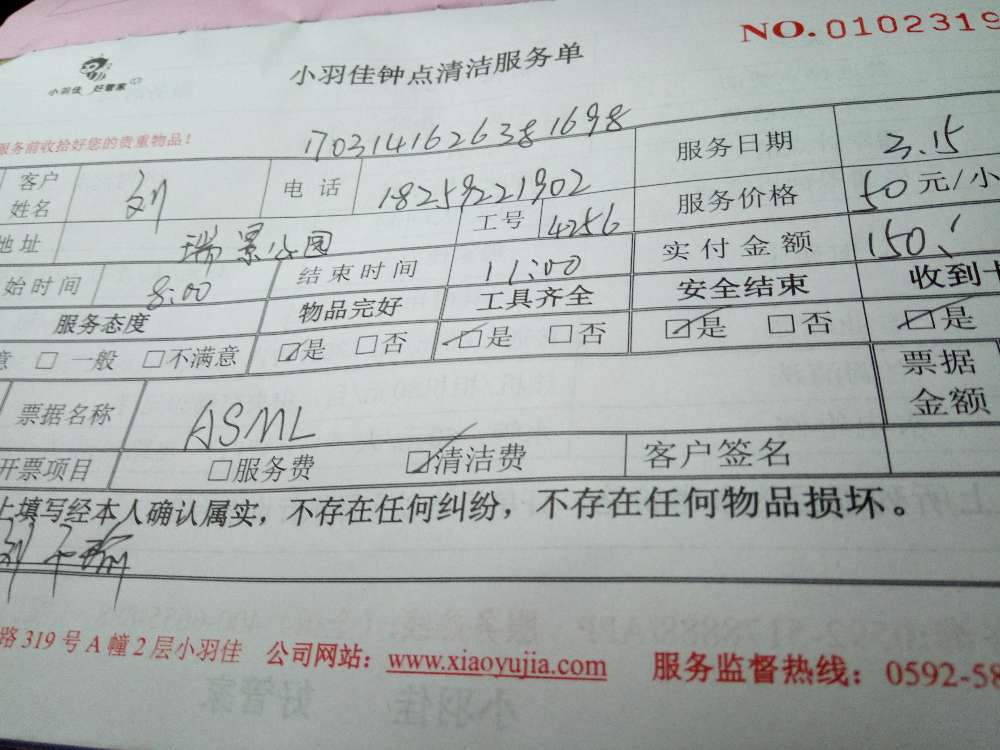 NO.0102319
小羽佳钟点清洁服务单
小羽佳 好管家
服务前收拾好您的贵重物品!
客户姓名 刘 电话 18259221902 服务日期 3.15
地址 瑞景公园 工号 4256 服务价格 50 元/小
始时间 8:00 结束时间 11:00 实付金额 150
服务态度 物品完好 工具齐全 安全结束 收到
意 □ 一般 □不满意 ☑是 □否 ☑是 □否 ☑是 □否 ☑是
票据名称 ASML 票据金额
开票项目 □服务费 ☑清洁费 客户签名
上填写经本人确认属实，不存在任何纠纷，不存在任何物品损坏。
路 319 号 A 幢 2 层小羽佳 公司网站：www.xiaoyujia.com 服务监督热线：0592-58